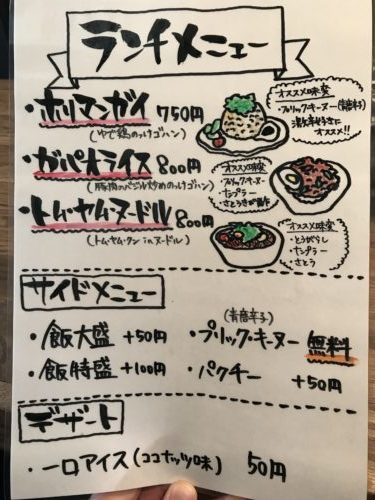 ランチメニュー
・ホリマンガイ 750円
(ゆで鶏のっけゴハン)
オススメ味変
・プリックキーヌー(青唐辛子)
激辛好きに
オススメ!!
・ガパオライス 800円
(豚肉のバジル炒めのっけゴハン)
オススメ味変
・プリックキーヌー
・ナンプラー
・さとうきび酢
・トムヤムヌードル 800円
(トム・ヤム・クン in ヌードル)
オススメ味変
・とうがらし
・ナンプラー
・さとう
サイドメニュー
・飯大盛 +50円
・飯特盛 +100円
(青唐辛子)
・プリック・キーヌー 無料
・パクチー +50円
デザート
・一口アイス(ココナッツ味) 50円